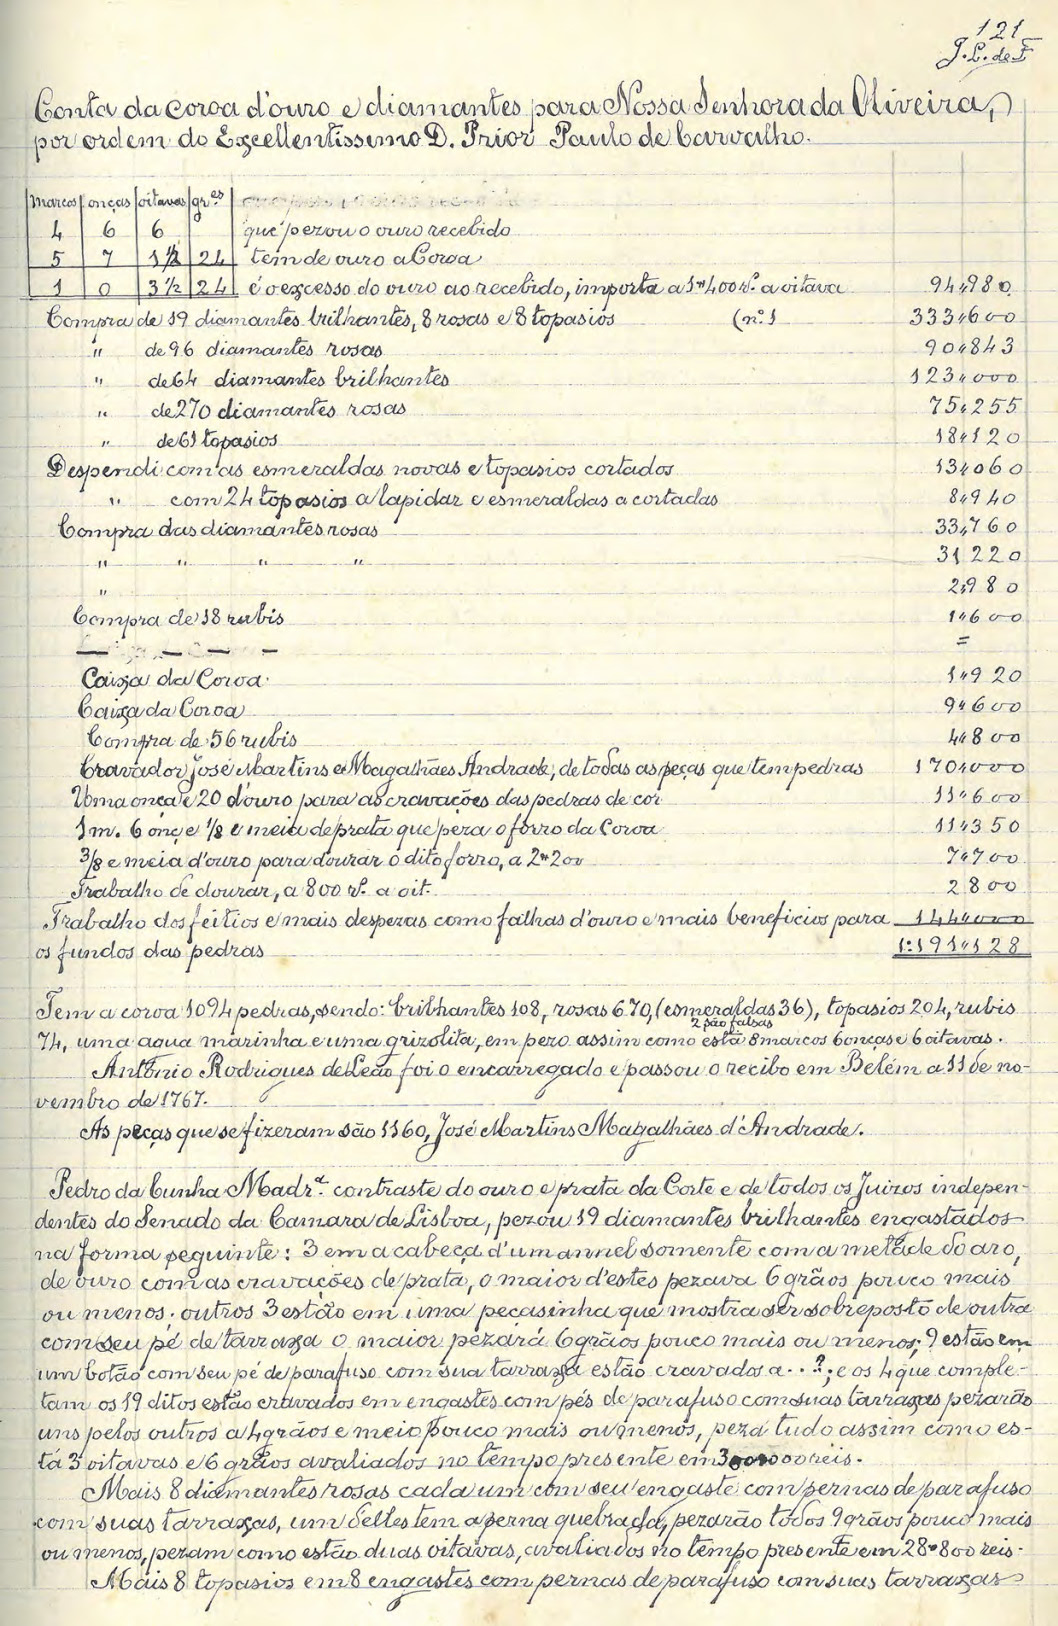 121
J. L. de F
Conta da coroa d'ouro e diamantes para Nossa Senhora da Oliveira,
por ordem do Excellentissimo D. Prior Paulo de Carvalho.
marcos onças oitavas gr.es
4 6 6 que pezou o ouro recebido
5 7 1 1/2 24 tem de ouro a Coroa
1 0 3 1/2 24 é o excesso do ouro ao recebido, importa a 1"400 rs. a oitava 94"980
Compra de 19 diamantes brilhantes, 8 rosas e 8 topasios (n.º 1 333"600
" de 96 diamantes rosas 90"843
" de 64 diamantes brilhantes 123"000
" de 270 diamantes rosas 75"255
" de 61 topasios 18"120
Despendi com as esmeraldas novas e topasios cortados 13"060
" com 24 topasios a lapidar e esmeraldas a cortadas 8"940
Compra das diamantes rosas 33"760
" " " " 31220
" 2"980
Compra de 18 rubis 1"600
=
Caixa da Coroa 1"920
Caixa da Coroa 9"600
Compra de 56 rubis 4"800
Cravador José Martins e Magalhães Andrade, de todas as peças que tem pedras 170"000
Uma onça e 20 d'ouro para as cravações das pedras de cor 11"600
1 m. 6 onç e 1/8 e meia de prata que peza o forro da Coroa 11"350
3/8 e meia d'ouro para dourar o dito forro, a 2"200 7"700
Trabalho de dourar, a 800 rs. a oit. 2800
Trabalho dos feitios e mais despezas como falhas d'ouro e mais beneficios para 144"000
os fundos das pedras 1:191"128
Tem a coroa 1094 pedras, sendo: brilhantes 108, rosas 670, (esmeraldas 36), topasios 204, rubis
2 são falsas
74, uma agua marinha e uma grizolita, em pezo assim como está 8 marcos 6 onças e 6 oitavas.
António Rodrigues de Leão foi o encarregado e passou o recibo em Belém a 11 de no-
vembro de 1767.
As peças que se fizeram são 1160, José Martins Magalhães d'Andrade.
Pedro da Cunha Madr.ª contraste do ouro e prata da Corte e de todos os Juizos indepen-
dentes do Senado da Camara de Lisboa, pezou 19 diamantes brilhantes engastados
na forma seguinte: 3 em a cabeça d'um annel somente com a metade do aro,
de ouro com as cravações de prata, o maior d'estes pezava 6 grãos pouco mais
ou menos; outros 3 estão em uma pecasinha que mostra ser sobreposto de outra
com seu pé de tarraxa o maior pezará 6 grãos pouco mais ou menos; 9 estão em
um botão com seu pé de parafuso com sua tarraxa estão cravados a . . ?; e os 4 que comple-
tam os 19 ditos estão cravados em engastes com pés de parafuso com suas tarraxas pezarão
uns pelos outros a 4 grãos e meio pouco mais ou menos, peza tudo assim como es-
tá 3 oitavas e 6 grãos avaliados no tempo presente em reis.
Mais 8 diamantes rosas cada um com seu engaste com pernas de parafuso
com suas tarraxas, um delles tem a perna quebrada, pezarão todos 9 grãos pouco mais
ou menos, pezam como estão duas oitavas, avaliados no tempo presente em 28"800 reis.
Mais 8 topasios em 8 engastes com pernas de parafuso com suas tarraxas